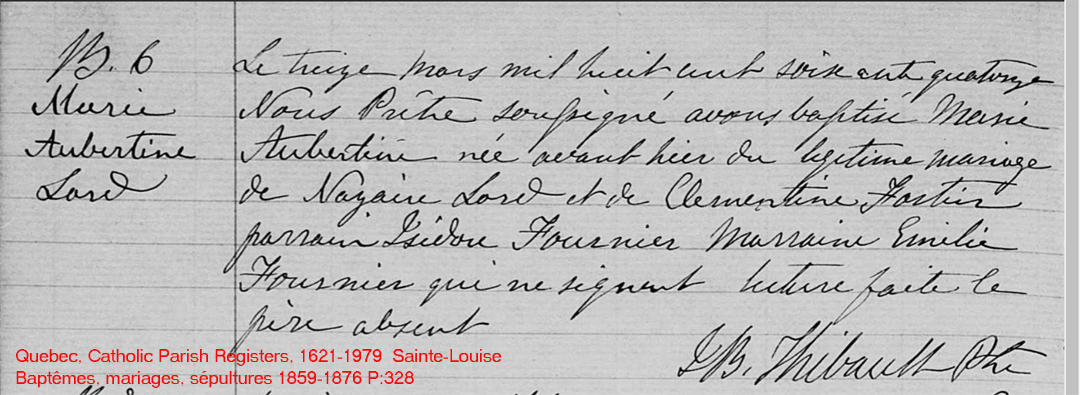 B. 6
Marie
Aubertine
Lord
Le treize mars mil huit cent soixante quatorze
Nous Prêtre soussigné avons baptisé Marie
Aubertine née avant hier du légitime mariage
de Nazaire Lord et de Clementine Fortin
parrain Isidore Fournier Marraine Emilie
Fournier qui ne signent lecture faite le
père absent
J B. Thibault Ptre
Quebec, Catholic Parish Registers, 1621-1979 Sainte-Louise
Baptêmes, mariages, sépultures 1859-1876 P:328